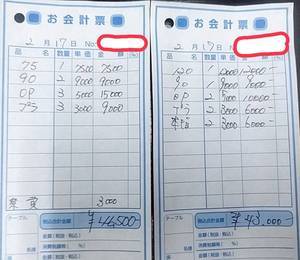 お会計票
2月17日 No.
品名 数量 単価 金額
75 1 7500 7500
90 2 9000 9000
OP 3 5000 15000
プラ 3 3000 9000
3000
テーブル 税込合計金額 ¥46,500-
お会計票
2月17日
品名 数量 単価 金額
120 1 12000 12000-
90 1 9000 9000-
OP 2 10000-
プラ 2 3000 6000-
2 3000 6000-
テーブル 税込合計金額 ¥43,000-